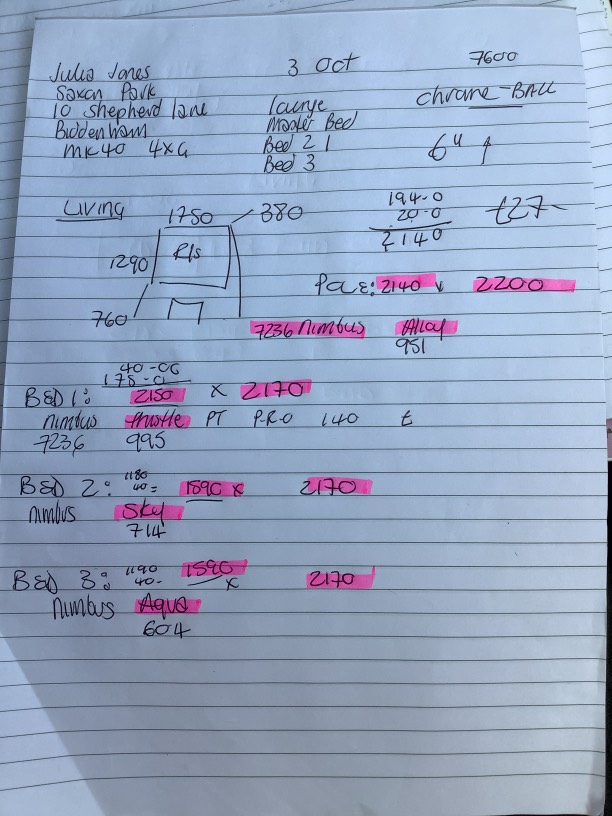 Julia Jones 3 Oct 7600
Saxon Park
10 Shepherd lane lounge chrome-BALL
Biddenham Master Bed
MK40 4xG Bed 2 1 6"
Bed 3
Living 1750 380 194-0
20-0
R/s 2140
1290
Pole: 2140 2200
760
7236 nimbus Alloy
951
40-00
178-0
BED 1: 2150 x 2170
nimbus thistle PT P.R.O 140 t
7236 995
1180
BED 2: 40= 1590 x 2170
nimbus Sky
714
1190
BED 3: 40- 1590 x 2170
nimbus Aqua
604